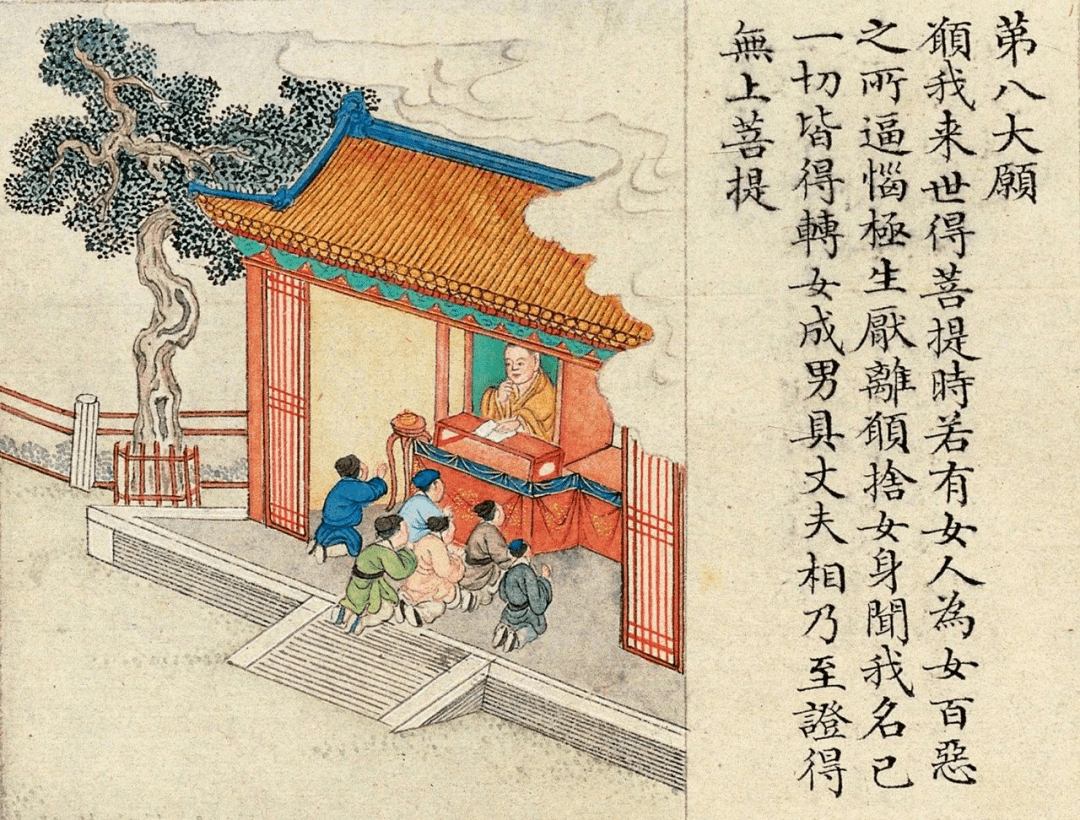 第八大願
願我来世得菩提時若有女人為女百惡
之所逼惱極生厭離願捨女身聞我名已
一切皆得轉女成男具丈夫相乃至證得
無上菩提